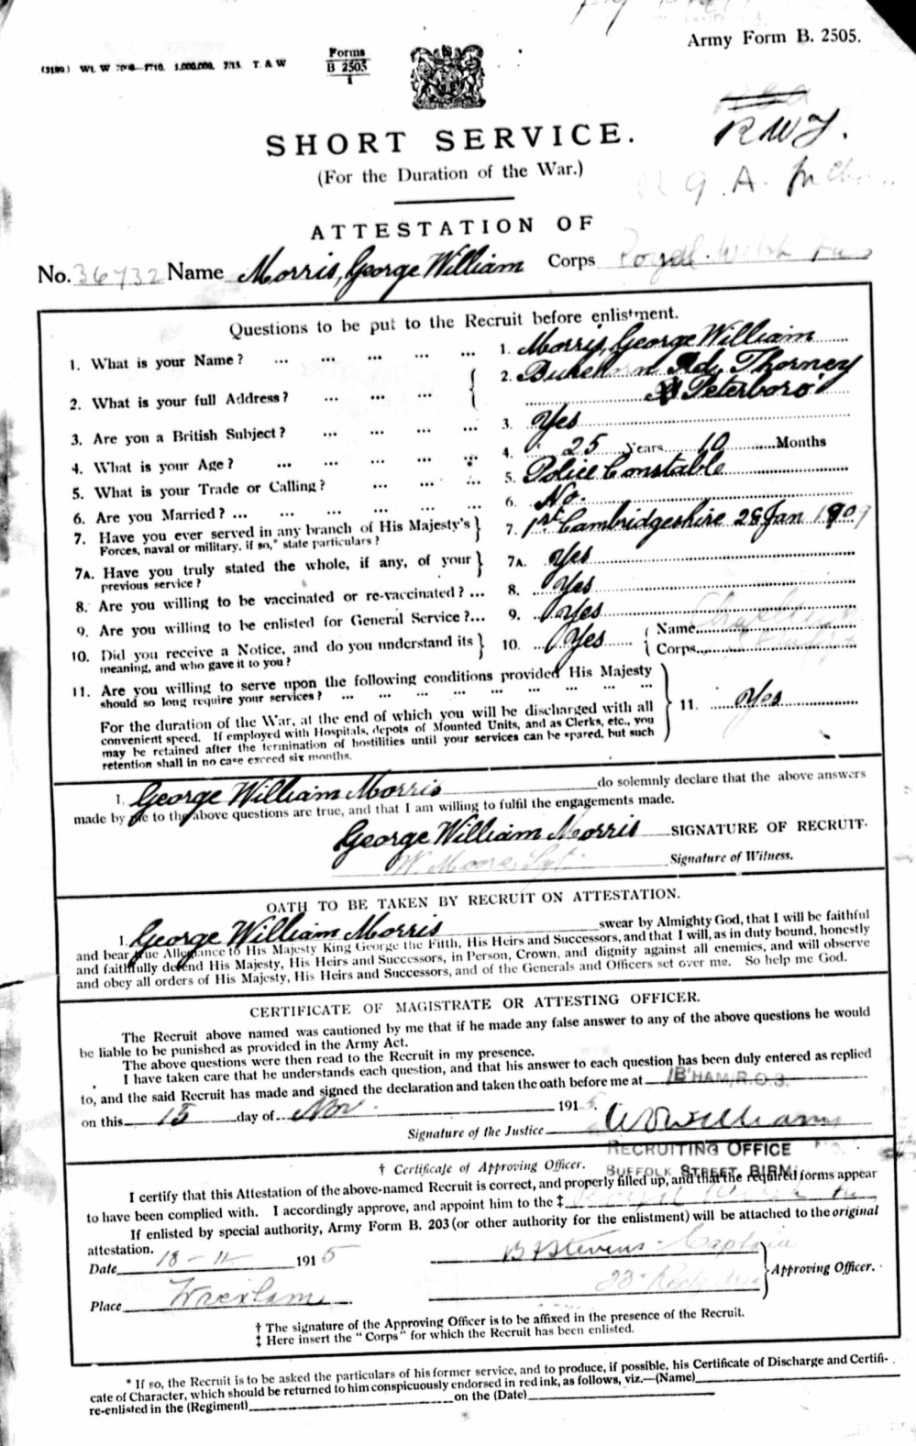 Army Form B. 2505.
Forms
B 2505
1
R.W.F.
R G A.
SHORT SERVICE.
(For the Duration of the War.)
ATTESTATION OF
No. 36732 Name Morris, George William Corps Royal Welsh Fus
Questions to be put to the Recruit before enlistment.
1. What is your Name? ... ... ... ... ... 1. Morris, George William
2. What is your full Address? ... ... ... { 2. Rd, Thorney
Peterboro'
3. Are you a British Subject? ... ... ... 3. Yes
4. What is your Age? ... ... ... ... 4. 25 Years 10 Months
5. What is your Trade or Calling? ... ... ... 5. Police Constable
6. Are you Married? ... ... ... ... ... ... 6. No.
7. Have you ever served in any branch of His Majesty's } 7. 1st Cambridgeshire 28 Jan 1909
Forces, naval or military, if so,* state particulars?
7A. Have you truly stated the whole, if any, of your } 7A. Yes
previous service?
8. Are you willing to be vaccinated or re-vaccinated? ... 8. Yes
9. Are you willing to be enlisted for General Service?... 9. Yes
10. Did you receive a Notice, and do you understand its } 10. Yes { Name
meaning, and who gave it to you? Corps
11. Are you willing to serve upon the following conditions provided His Majesty
should so long require your services? ... ... ... ... ... ... ... ... ...
For the duration of the War, at the end of which you will be discharged with all } 11. Yes
convenient speed. If employed with Hospitals, depots of Mounted Units, and as Clerks, etc., you
may be retained after the termination of hostilities until your services can be spared, but such
retention shall in no case exceed six months.
I, George William Morris do solemnly declare that the above answers
made by me to the above questions are true, and that I am willing to fulfil the engagements made.
George William Morris SIGNATURE OF RECRUIT.
W. Moore, Sgt. Signature of Witness.
OATH TO BE TAKEN BY RECRUIT ON ATTESTATION.
I, George William Morris swear by Almighty God, that I will be faithful
and bear true Allegiance to His Majesty King George the Fifth, His Heirs and Successors, and that I will, as in duty bound, honestly
and faithfully defend His Majesty, His Heirs and Successors, in Person, Crown, and dignity against all enemies, and will observe
and obey all orders of His Majesty, His Heirs and Successors, and of the Generals and Officers set over me. So help me God.
CERTIFICATE OF MAGISTRATE OR ATTESTING OFFICER.
The Recruit above named was cautioned by me that if he made any false answer to any of the above questions he would
be liable to be punished as provided in the Army Act.
The above questions were then read to the Recruit in my presence.
I have taken care that he understands each question, and that his answer to each question has been duly entered as replied
to, and the said Recruit has made and signed the declaration and taken the oath before me at B'HAM, R.O.3.
on this 15 day of Nov. 1915.
Signature of the Justice Williams
RECRUITING OFFICE
SUFFOLK STREET, BIRM.
† Certificate of Approving Officer.
I certify that this Attestation of the above-named Recruit is correct, and properly filled up, and that the required forms appear
to have been complied with. I accordingly approve, and appoint him to the ‡ Royal Welsh Fus
If enlisted by special authority, Army Form B. 203 (or other authority for the enlistment) will be attached to the original
attestation.
Date 18 - 11 1915 Stevens Captain
} Approving Officer.
Place Wrexham
† The signature of the Approving Officer is to be affixed in the presence of the Recruit.
‡ Here insert the "Corps" for which the Recruit has been enlisted.
* If so, the Recruit is to be asked the particulars of his former service, and to produce, if possible, his Certificate of Discharge and Certifi-
cate of Character, which should be returned to him conspicuously endorsed in red ink, as follows, viz.—(Name)
re-enlisted in the (Regiment) on the (Date)